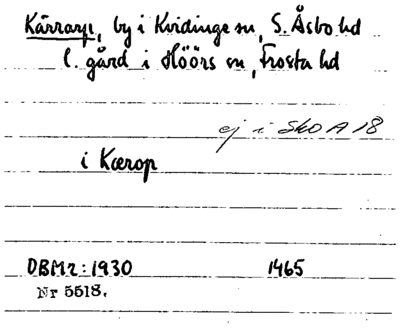 Kärrarp, by i Kvidinge sn, S. Åsbo hd
l. gård i Höörs sn, Frosta hd
ej i SkO A 18
i Kærop
DBMr: 1930 1465
Nr 5518.